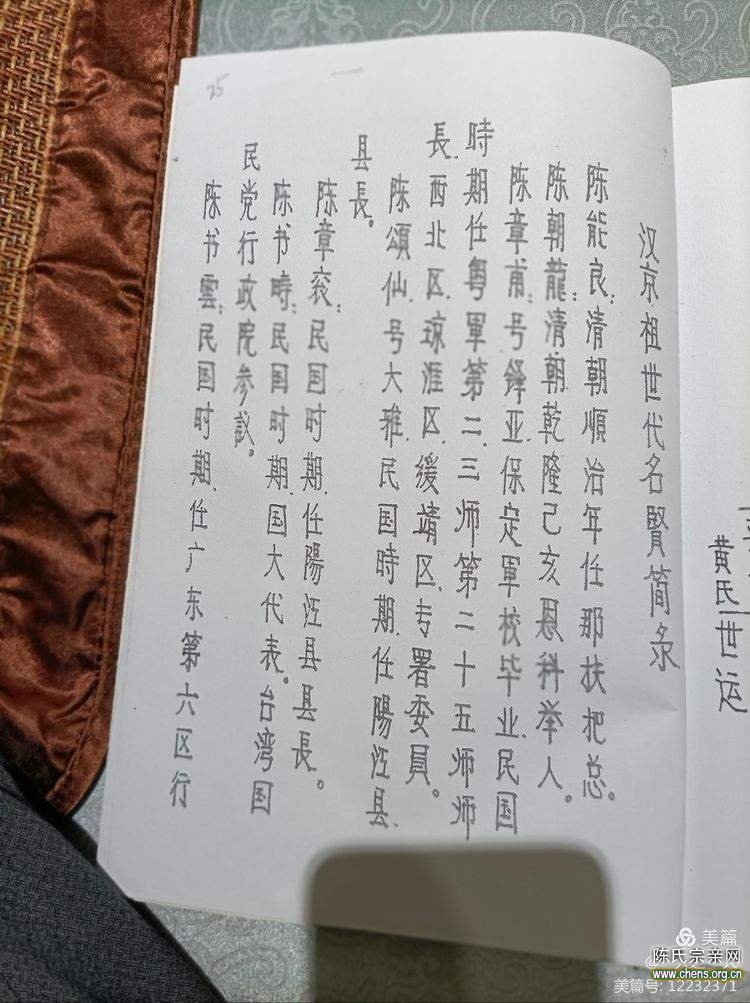 汉京祖世代名賢简录
陈能良：清朝順治年任那扶把总。
陈朝龍：清朝乾隆己亥恩科举人。
陈章甫：号鋒亚、保定軍校毕业、民国
時期任粤軍第二、三师第二十五师师
長、西北区、琼涯区、绥靖区、专署委員。
陈頌仙、号大雅、民国時期、任陽江县
县長。
陈章衮：民国时期、任陽江县县長。
陈书時：民国时期、国大代表。台湾国
民党行政院参议。
陈书雲：民国时期、任广东第六区行
25
黄氏一世运
美篇
陈氏宗亲网
www.chens.org.cn
美篇号: 12232371